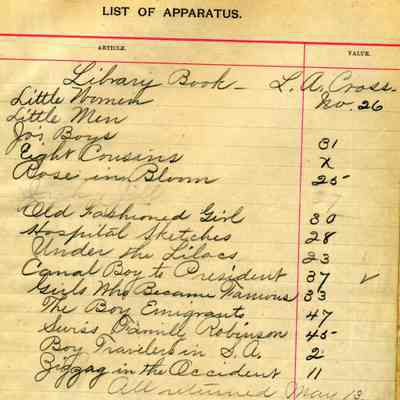 LIST OF APPARATUS.
ARTICLE. VALUE.
Library Book - L. A. Cross.
Little Women No. 26
Little Men
Jo's Boys 31
Eight Cousins X
Rose in Bloom 25
Old Fashioned Girl 30
Hospital Sketches 28
Under the Lilacs 23
Canal Boy to President 37 ✓
Girls Who Became Famous 33
The Boy Emigrants 47
Swiss Family Robinson 45
Boy Travelers in S. A. 2
Zigzag in the Occident 11
All returned May 13